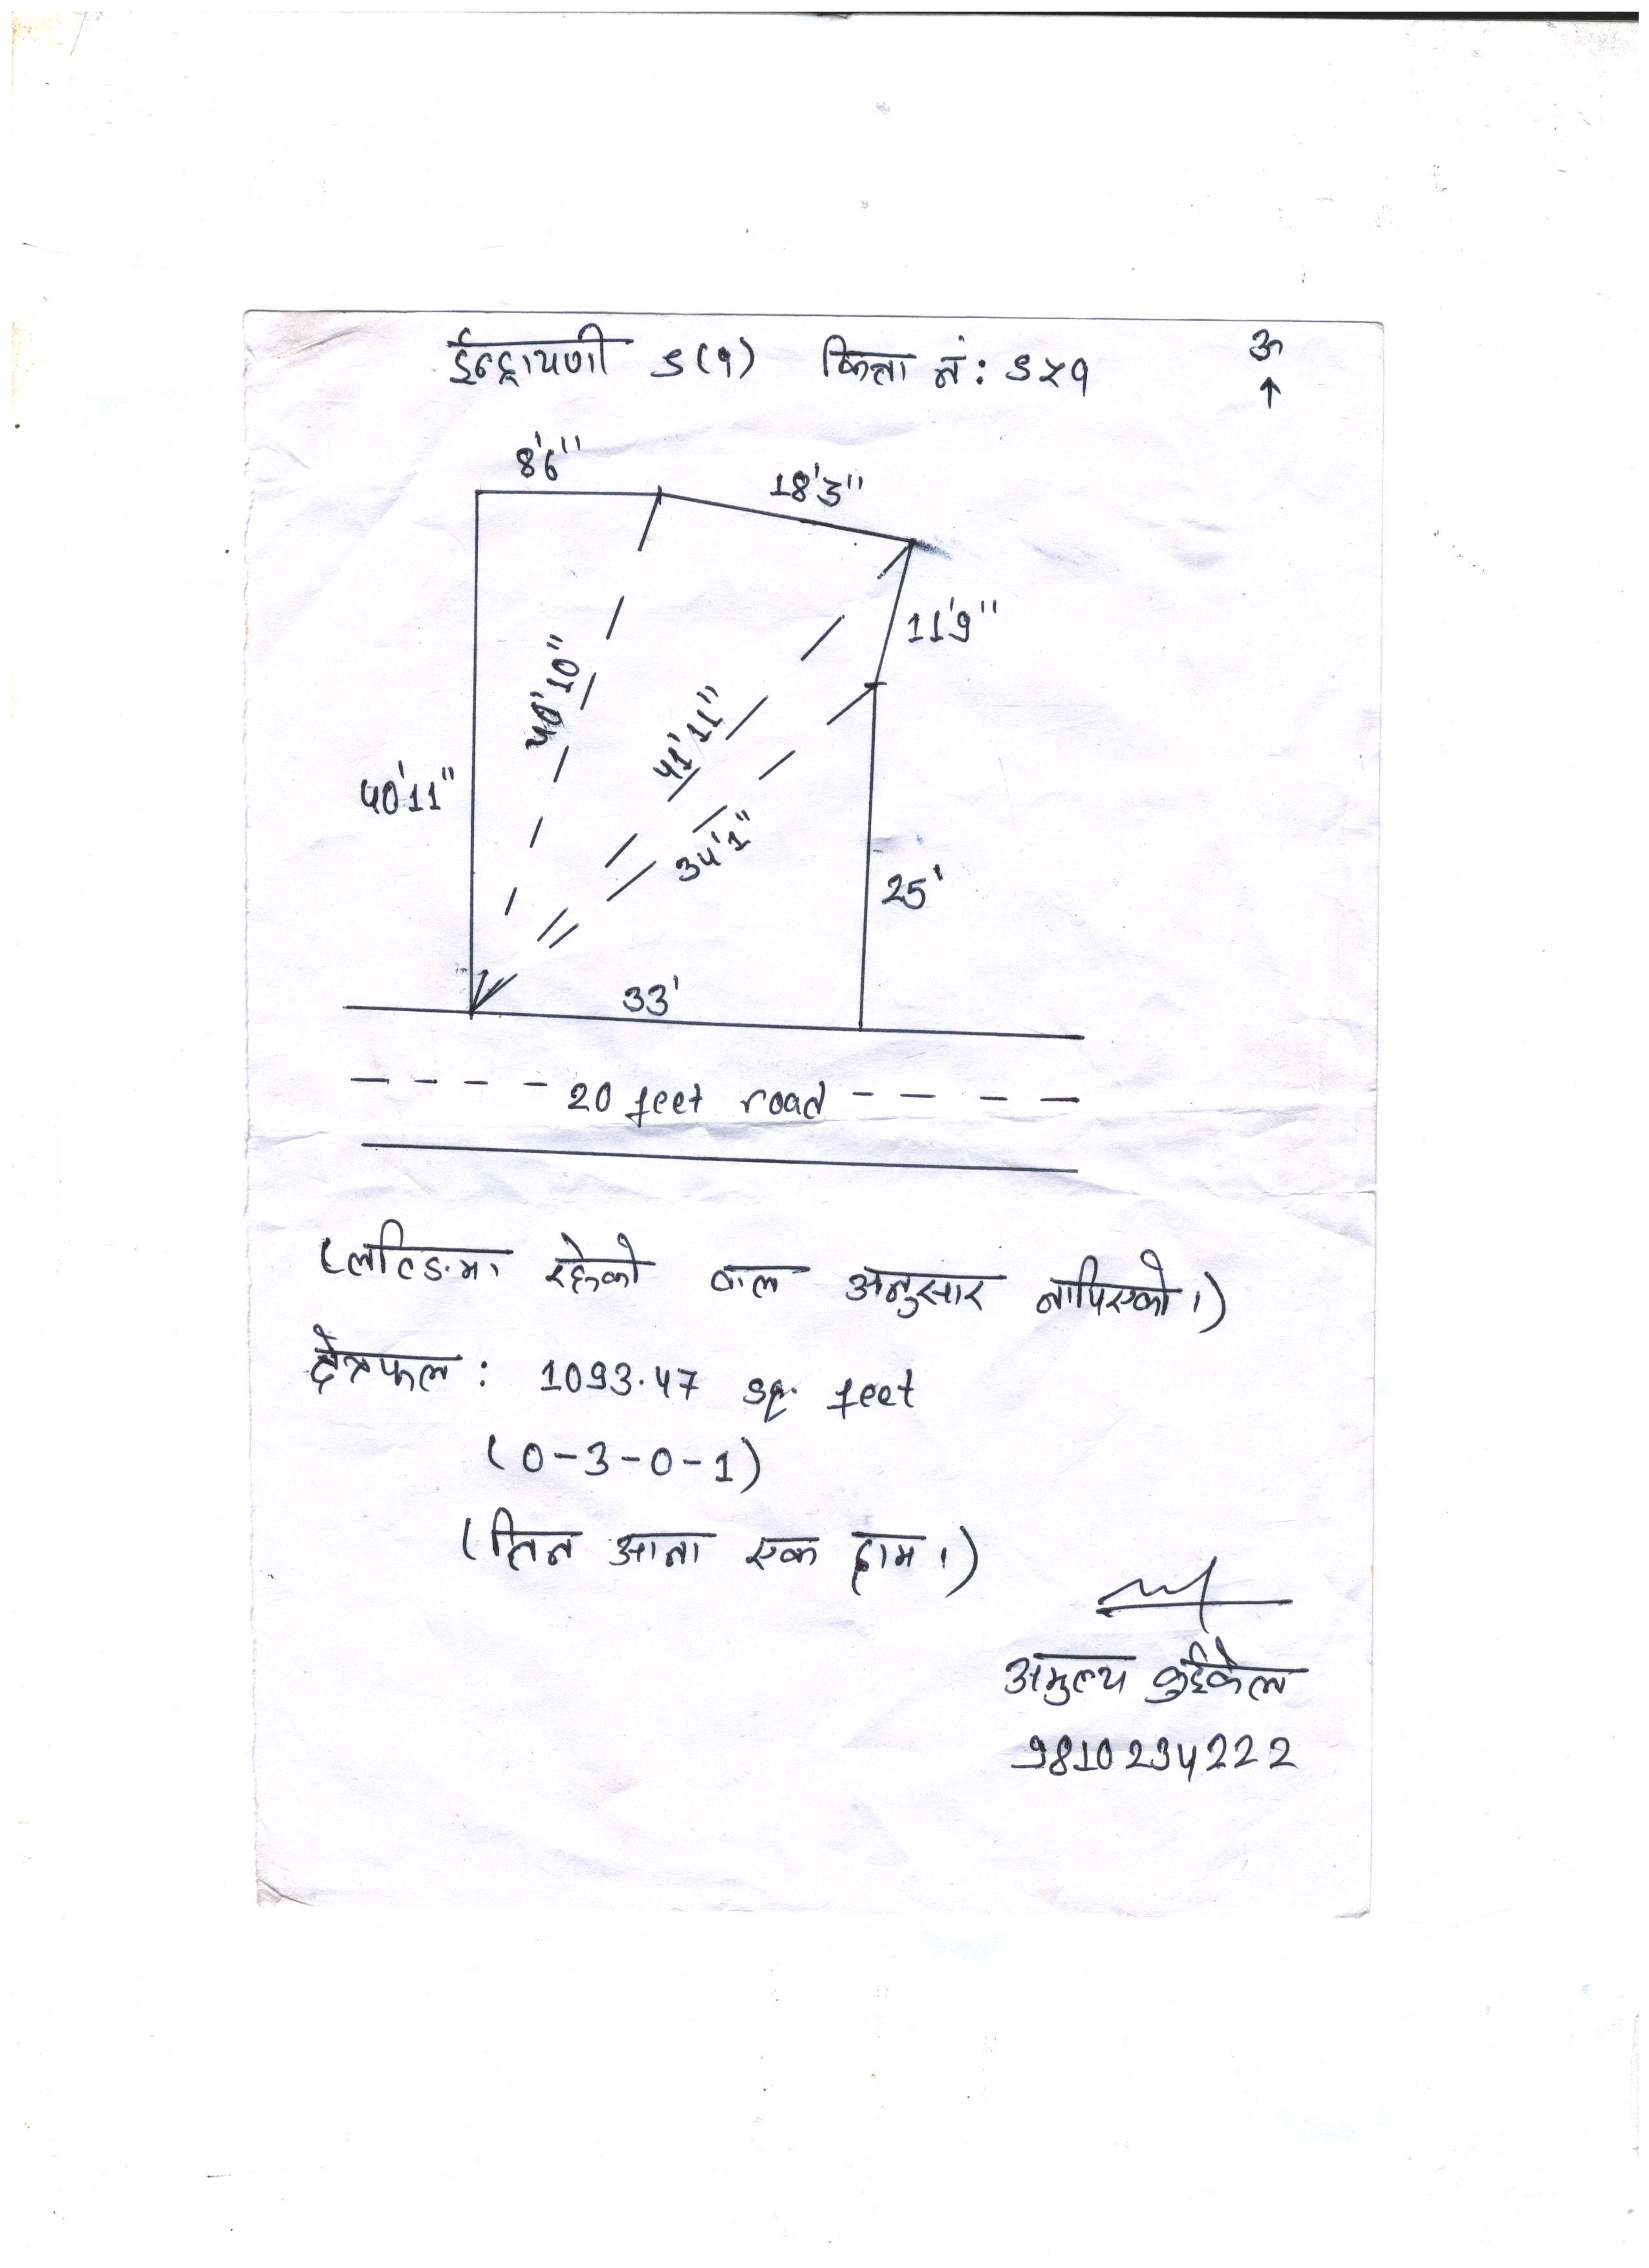 ईन्द्रायणी ६(१) कित्ता नं: ६५१
उ
8'6"
18'3"
11'9"
40'10"
41'11"
40'11"
34'1"
25'
33'
20 feet road
(प्लटिङमा रहेको वाल अनुसार नापिएको।)
क्षेत्रफल: 1093.47 sq. feet
(0-3-0-1)
(तिन आना एक दाम।)
अमुल्य कुईकेल
9810234222